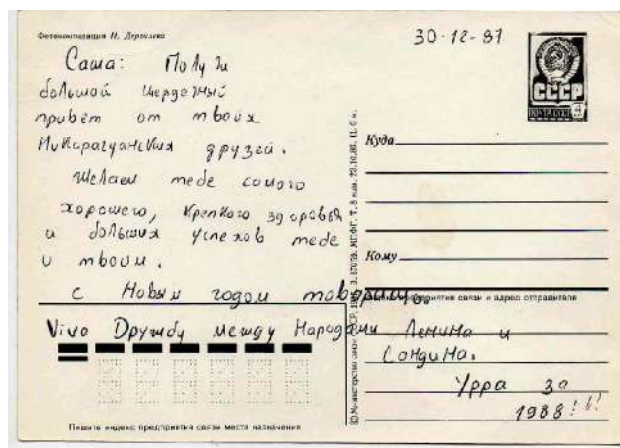 Фотокомпозиция И. Дергилева
30-12-87
СССР
Саша: Получи
большой щердечный
привет от твоих
Никарагуанския друзей.
Желаем тебе самого
хорошего, крепкого здоровья
и большия успехов тебе
и твоим.
С Новым годом товарищ.
Viva Дружбу между Народами Ленина и
Сандина.
Урра за
1988!!!
Куда
Кому
предприятия связи и адрес отправителя
Пишите индекс предприятия связи места назначения